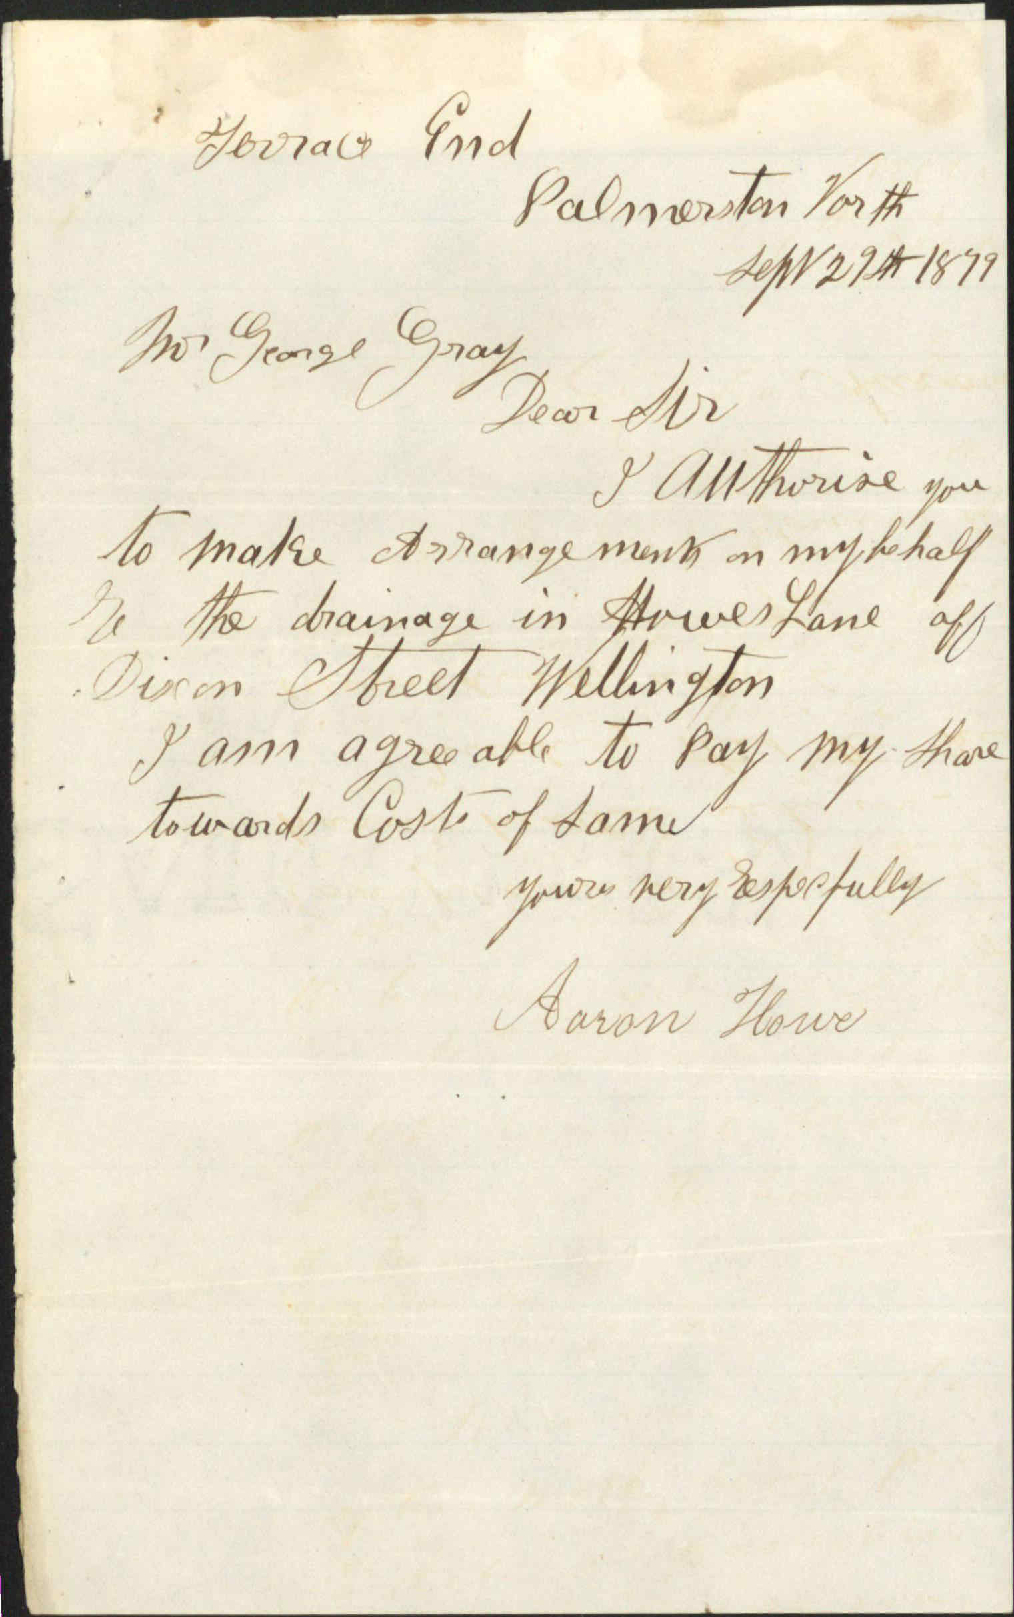 Terrace End
Palmerston North
Sept 29th 1879
Mr George Gray
Dear Sir
I Authorise you
to make Arrangements on my behalf
Re the drainage in Howes Lane off
Dixon Street Wellington
I am agreeable to Pay my share
towards Costs of same
yours very Respecfully
Aaron Howe